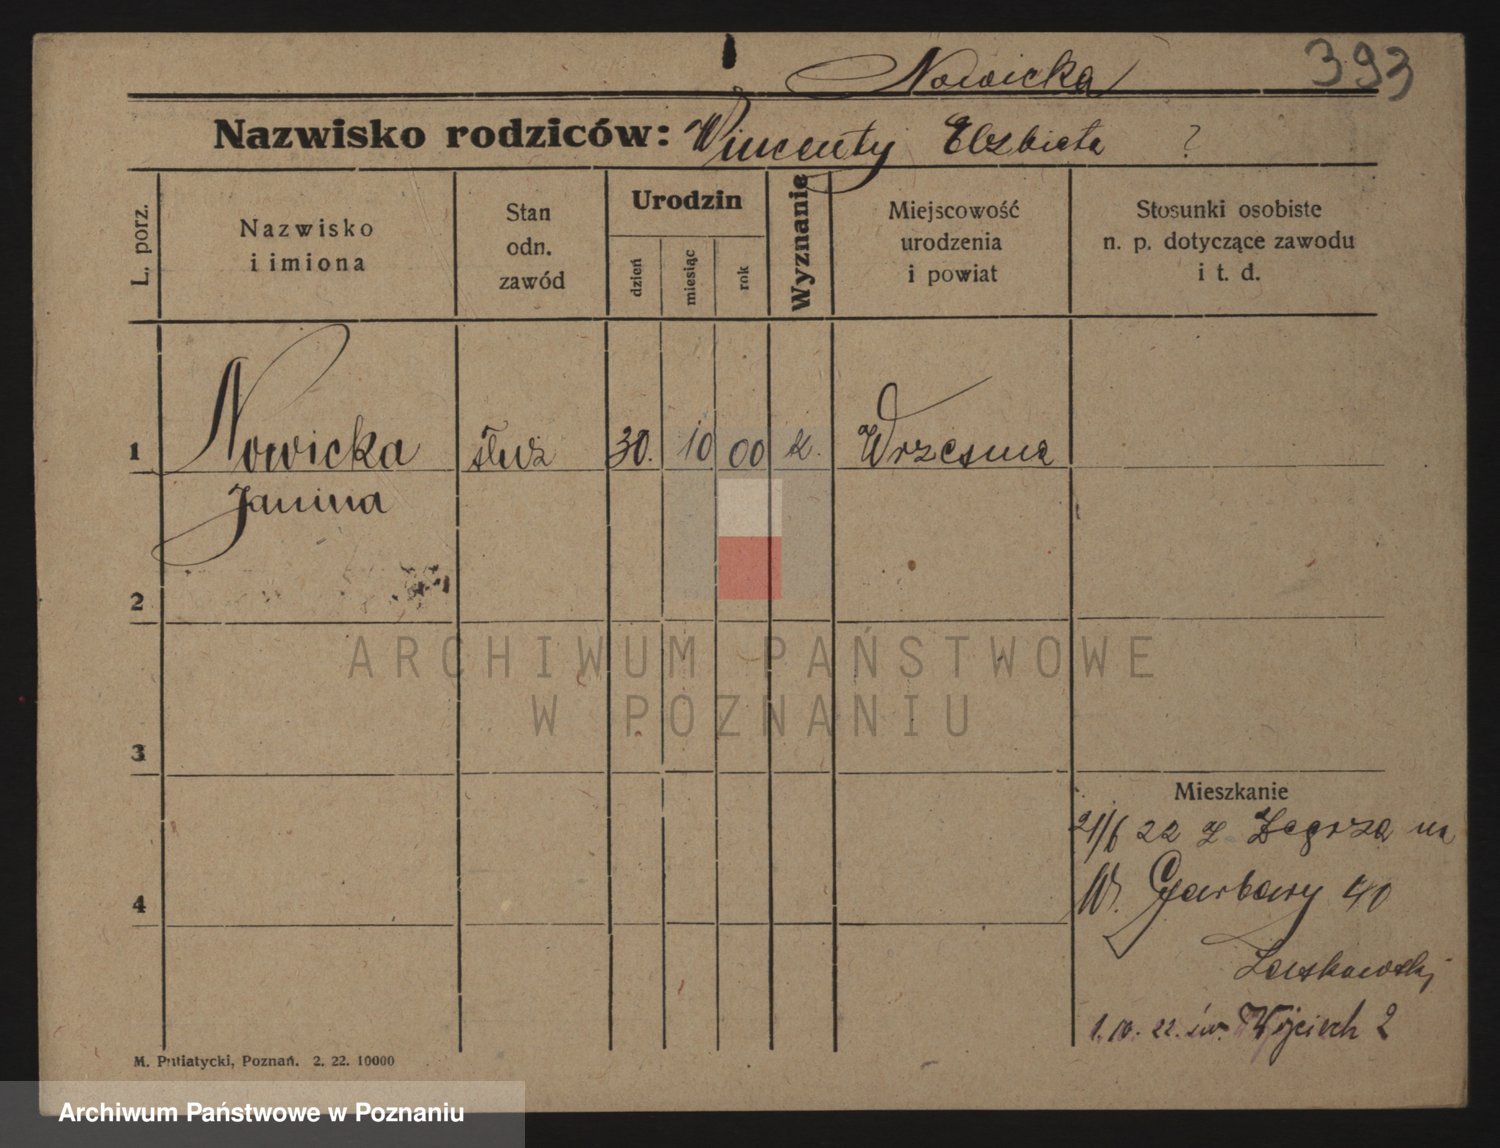 Nowicka 393
Nazwisko rodziców: Wincenty Elzbieta ?
L. porz.
Nazwisko
i imiona
Stan
odn.
zawód
Urodzin
dzień
miesiąc
rok
Wyznanie
Miejscowość
urodzenia
i powiat
Stosunki osobiste
n. p. dotyczące zawodu
i t. d.
1 Nowicka służ 30. 10 00 k. Wrzesnia
Janina
2
3
4
Mieszkanie
21/6 22 z Zegrza na
W. Garbary 40
1. 10. 22. św. Wojciech 2
M. Putiatycki, Poznań. 2. 22. 10000
ARCHIWUM PAŃSTWOWE
W POZNANIU
Archiwum Państwowe w Poznaniu